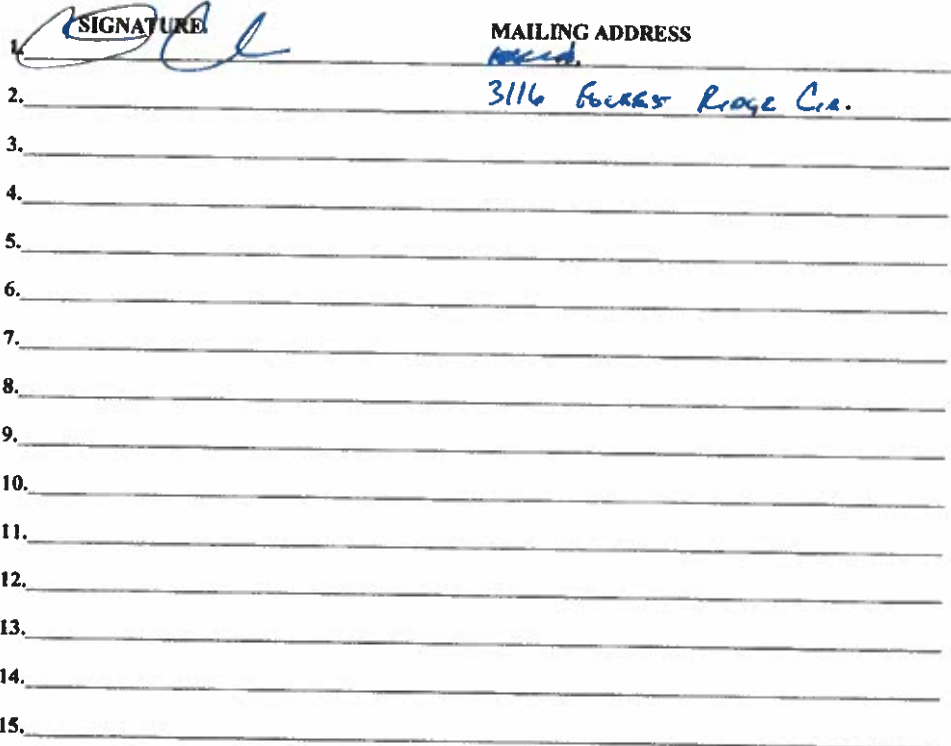 SIGNATURE MAILING ADDRESS
1.
2. 3116 Forrest Ridge Cir.
3.
4.
5.
6.
7.
8.
9.
10.
11.
12.
13.
14.
15.